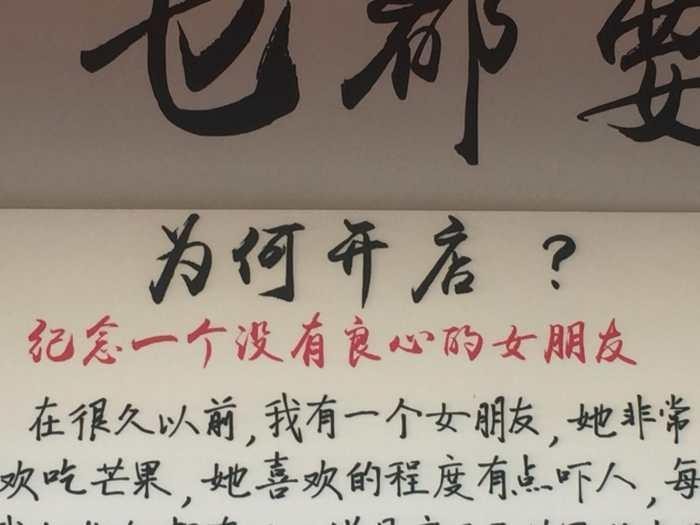 都要
为何开店？
纪念一个没有良心的女朋友
在很久以前,我有一个女朋友,她非常
欢吃芒果,她喜欢的程度有点吓人,每